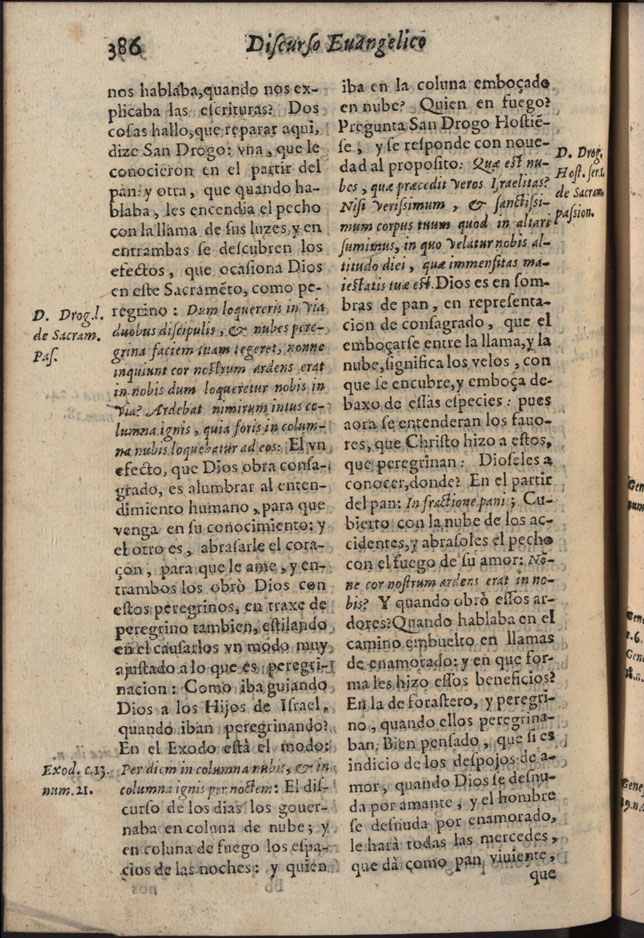 386
Discurso Euangelico
nos hablaba, quando nos ex-
plicaba las escrituras? Dos
cosas hallo, que reparar aqui,
dize San Drogo: vna, que le
conocieron en el partir del
pan: y otra, que quando ha-
blaba, les encendia el pecho
con la llama de sus luzes, y en
entrambas se descubren los
efectos, que ocasiona Dios
en este Sacramẽto, como pe-
regrino: Dum loquereris in via
duobus discipulis, & nubes pere-
grina faciem tuam tegeret, nonne
inquiunt cor nostrum ardens erat
in nobis dum loqueretur nobis in
via? Ardebat nimirum intus co-
lumna ignis, quia foris in colum-
na nubis loquebatur ad eos: El vn
efecto, que Dios obra consa-
grado, es alumbrar al enten-
dimiento humano, para que
venga en su conocimiento: y
el otro es, abrasarle el cora-
çon, para que le ame, y en-
trambos los obrò Dios con
estos peregrinos, en traxe de
peregrino tambien, estilando
en el causarlos vn modo muy
ajustado a lo que es peregri-
nacion: Como iba guiando
Dios a los Hijos de Israel,
quando iban peregrinando?
En el Exodo està el modo:
Per diem in columna nubis, & in
columna ignis per noctem: El dis-
curso de los dias los gouer-
naba en coluna de nube; y
en coluna de fuego los espa-
cios de las noches: y quien
D. Drog. l.
de Sacram.
Pas.
Exod. c. 13.
num. 21.
iba en la coluna emboçado
en nube? Quien en fuego?
Pregunta San Drogo Hostiẽ-
se, y se responde con noue-
dad al proposito: Quæ est nu-
bes, quæ præcedit veros Israelitas?
Nisi verissimum, & sanctissi-
mum corpus tuum quod in altari
sumimus, in quo velatur nobis al-
titudo diei, quæ immensitas ma-
iestatis tuæ est. Dios es en som-
bras de pan, en representa-
cion de consagrado, que el
emboçarse entre la llama, y la
nube, significa los velos, con
que se encubre, y emboça de-
baxo de essas especies: pues
aora se entenderan los fauo-
res, que Christo hizo a estos,
que peregrinan: Dioseles a
conocer, donde? En el partir
del pan: In fractione panis; Cu-
bierto con la nube de los ac-
cidentes, y abrasoles el pecho
con el fuego de su amor: Nõ-
ne cor nostrum ardens erat in no-
bis? Y quando obrò essos ar-
dores? Quando hablaba en el
camino embuelto en llamas
de enamorado: y en que for-
ma les hizo essos beneficios?
En la de forastero, y peregri-
no, quando ellos peregrina-
ban. Bien pensado, que si es
indicio de los despojos de a-
mor, quando Dios se desnu-
da por amante, y el hombre
se desnuda por enamorado,
le harà todas las mercedes,
que dà como pan viuiente,
que
D. Drog.
Host. ser. 1.
de Sacram.
passion.